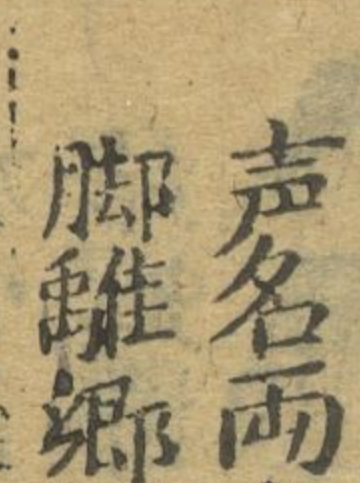 声名両
脚離郷